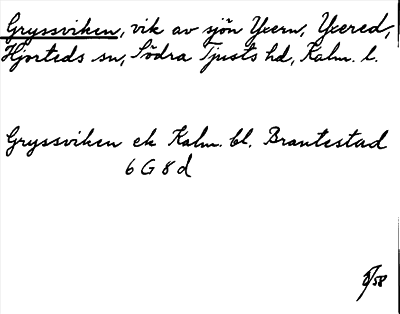 Gryssviken, vik av sjön Yxern, Yxered,
Hjorteds sn, Södra Tjusts hd, Kalm. l.
Gryssviken ek Kalm. bl. Brantestad
6 G 8 d
/58